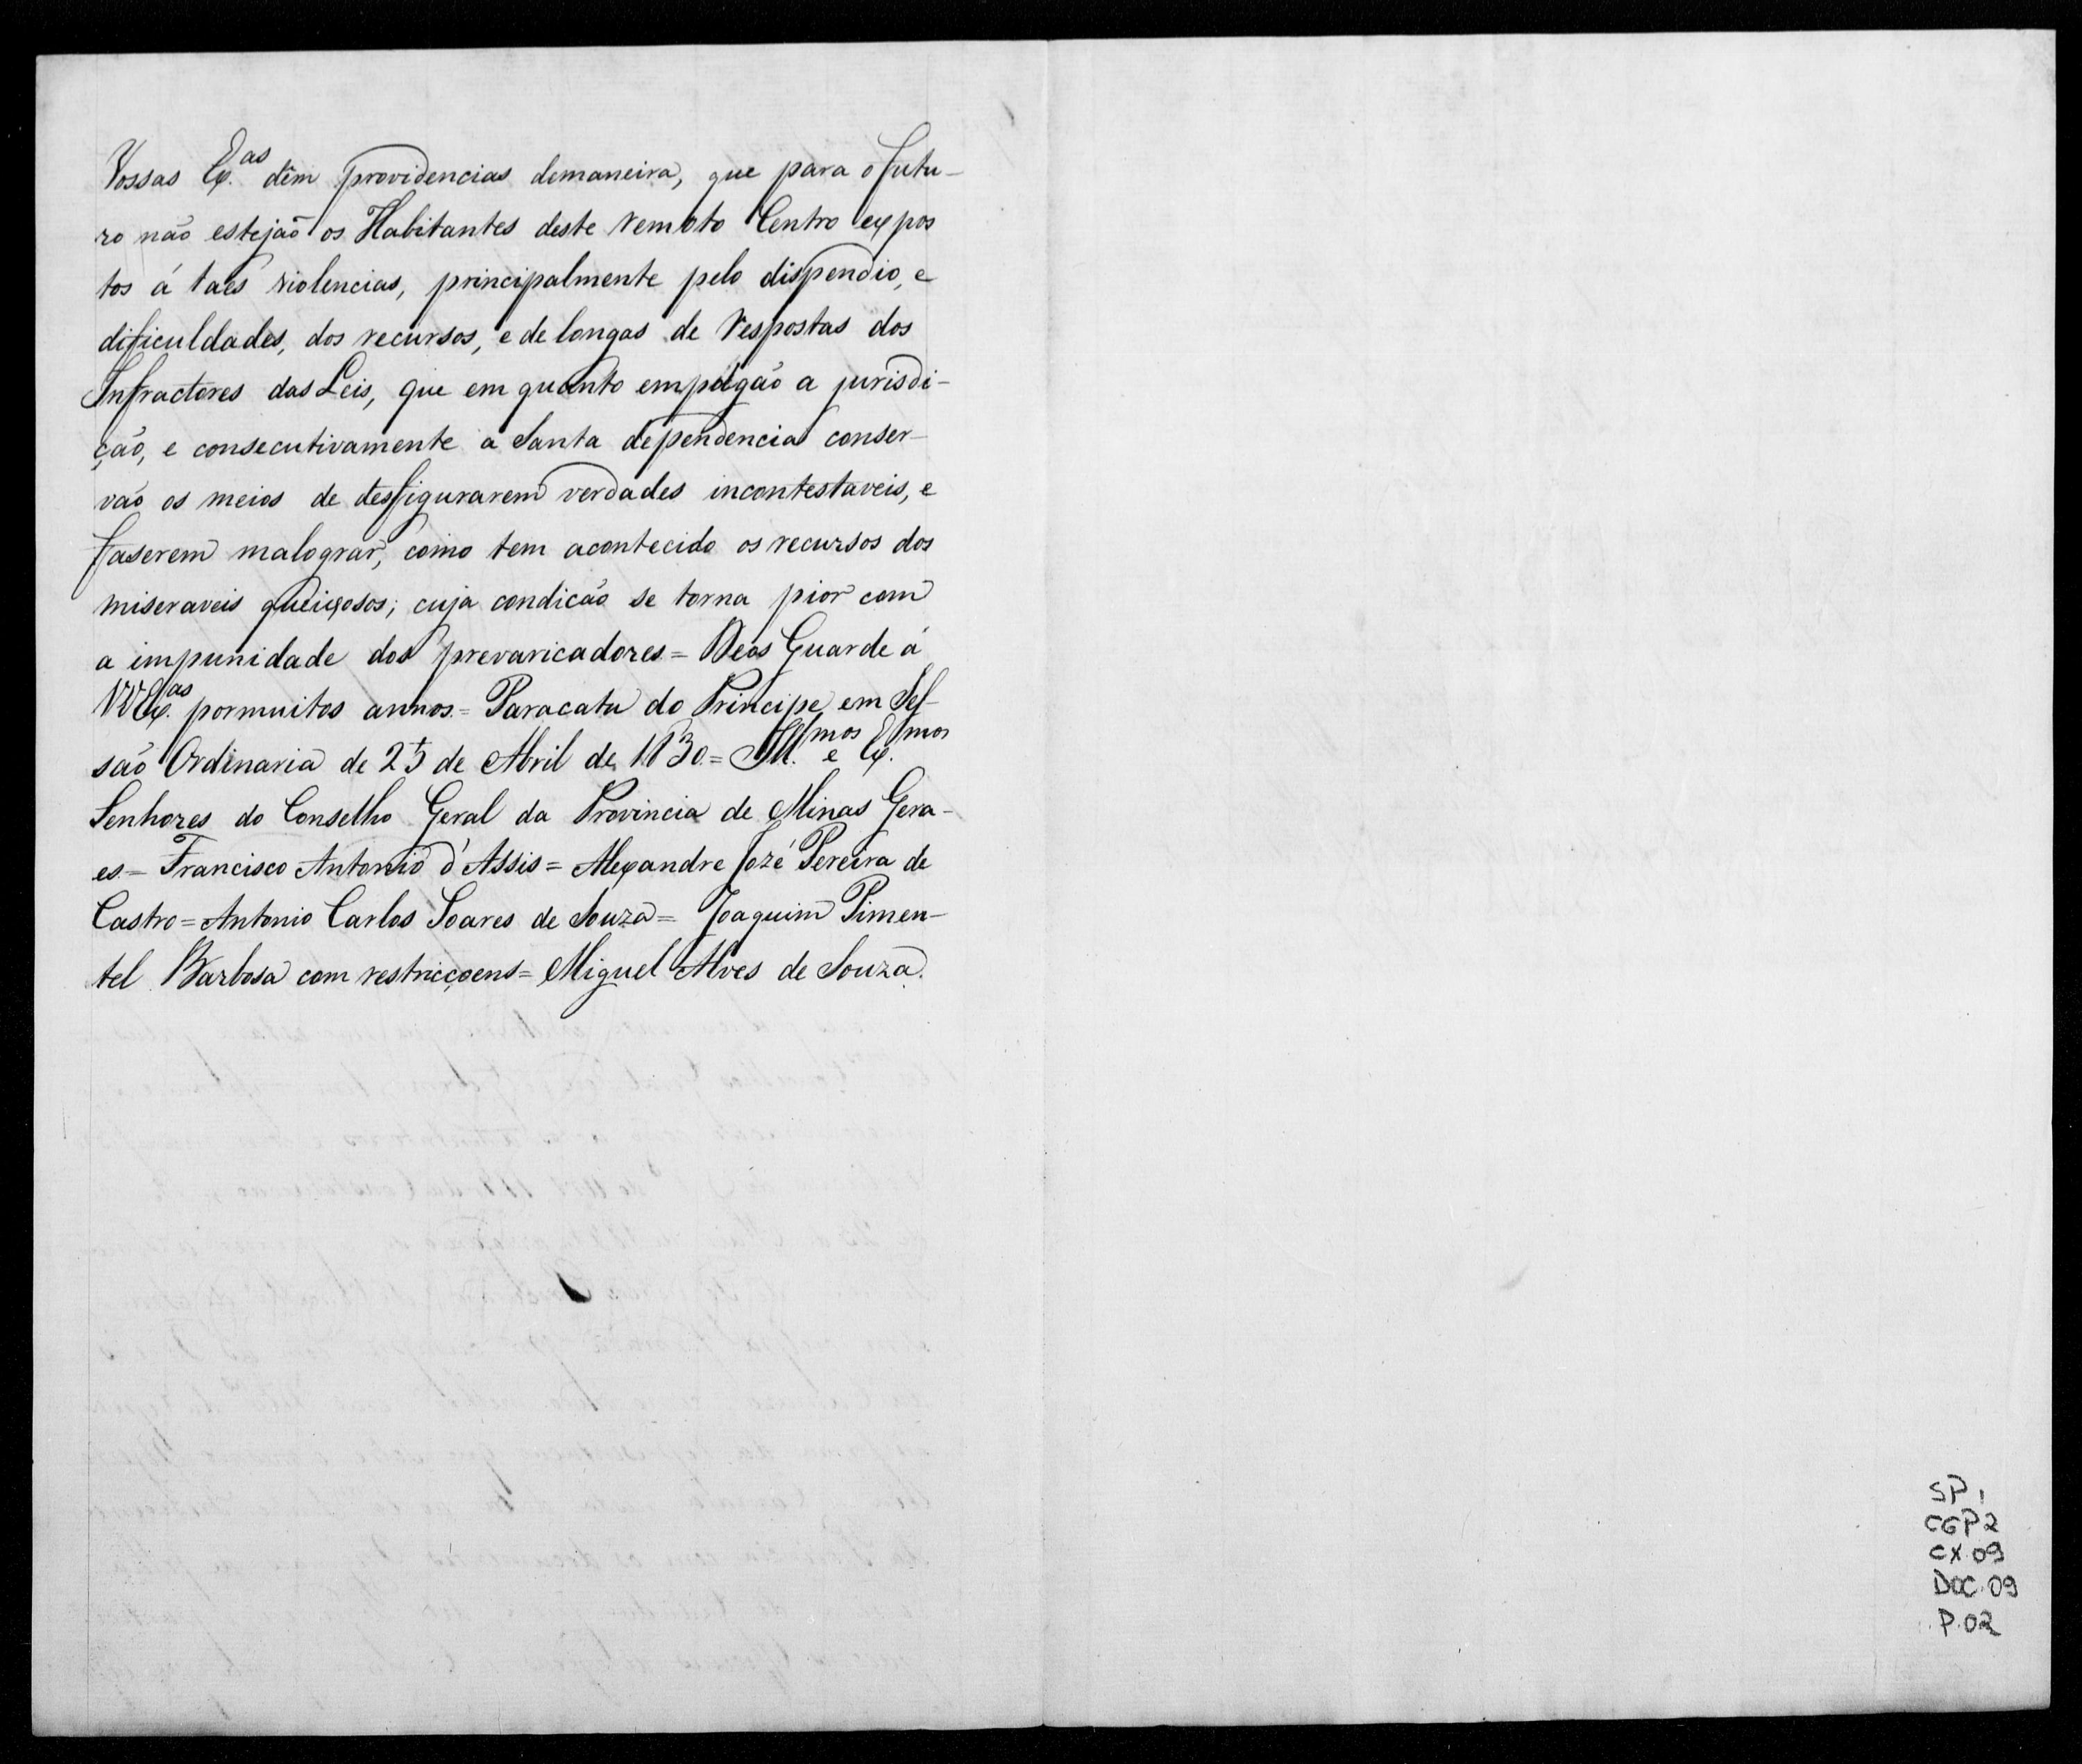 Vossas Ex.as dêm providencias demaneira, que para o futu-
ro não estejão os Habitantes deste remoto Centro expos
tos á taes violencias, principalmente pelo dispendio, e
dificuldades, dos recursos, e de longas de respostas dos
Infractores das Leis, que em quanto empulgão a jurisdi-
ção, e consecutivamente a Santa dependencia conser-
vão os meios de desfigurarem verdades incontestaveis, e
faserem malograr, como tem acontecido os recursos dos
miseraveis queixosos; cuja condicão se torna pior com
a impunidade dos prevaricadores = Deos Guarde á
VVEx.as pormuitos annos = Paracatu do Principe em Ses-
são Ordinaria de 25 de Abril de 1830 = Ill.mos e Ex.mos
Senhores do Conselho Geral da Provincia de Minas Gera-
es = Francisco Antonio d'Assis = Alexandre Jozé Pereira de
Castro = Antonio Carlos Soares de Souza = Joaquim Pimen-
tel Barbosa com restricçoens = Miguel Alves de Souza.
SP 1
CGP 2
CX 09
DOC. 09
P. 02